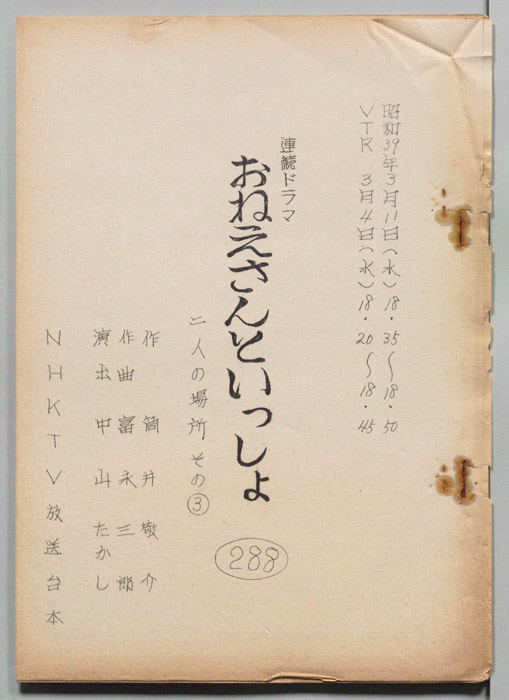 昭和39年3月11日(水)18・35～18・50
VTR 3月4日(水)18・20～18・45
連続ドラマ
おねえさんといっしょ
288
二人の場所その③
作 筒井敬介
作曲 冨永三郎
演出 中山たかし
NHKTV放送台本